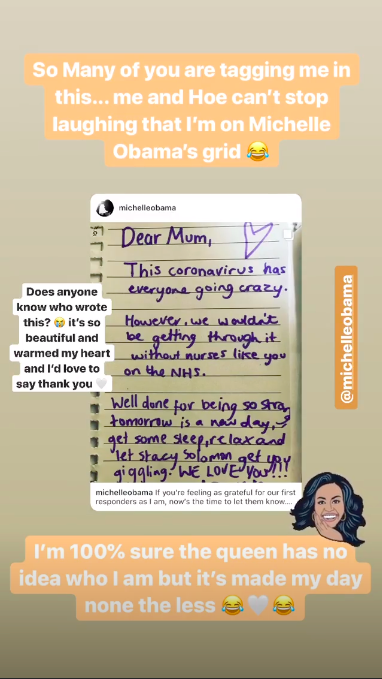 So Many of you are tagging me in
this... me and Hoe can't stop
laughing that I'm on Michelle
Obama's grid 😂
michelleobama
Dear Mum,
This coronavirus has
everyone going crazy.
However, we wouldn't
be getting through it
without nurses like you
on the NHS.
Well done for being so stron
tomorrow is a new day,
get some sleep, relax and
let stacy solomon get you
giggling. WE LOVE YOU!!!
Does anyone
know who wrote
this? 😭 it's so
beautiful and
warmed my heart
and I'd love to
say thank you 🤍
@michelleobama
michelleobama If you're feeling as grateful for our first
responders as I am, now's the time to let them know....
I'm 100% sure the queen has no
idea who I am but it's made my day
none the less 😂🤍😂